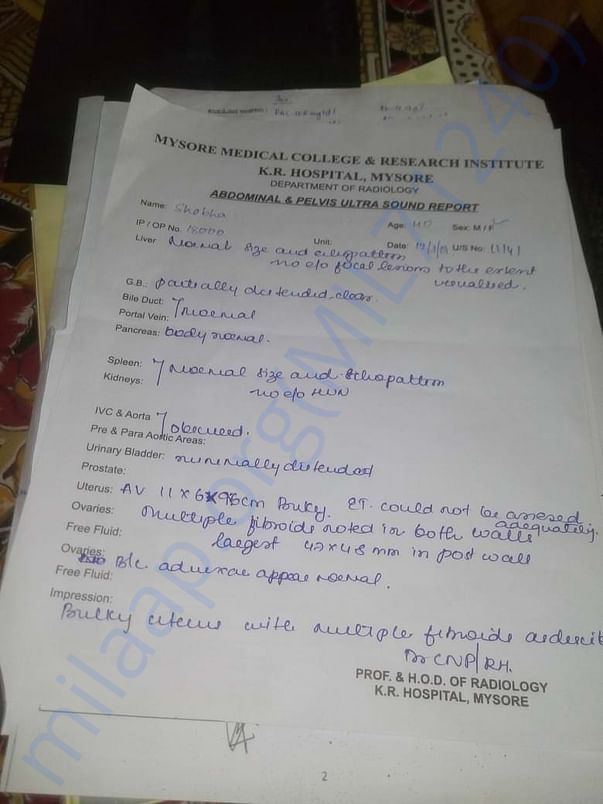 MYSORE MEDICAL COLLEGE & RESEARCH INSTITUTE
K.R. HOSPITAL, MYSORE
DEPARTMENT OF RADIOLOGY
ABDOMINAL & PELVIS ULTRA SOUND REPORT
Name: Shobha Age: 40 Sex: M / F
IP / OP No. 18000 Unit: Date: U/S No:
Liver Normal size and echopattern
no e/o focal lesions to the extent
visualised.
G.B.: partially distended, clear.
Bile Duct:
Portal Vein: Normal
Pancreas: body normal.
Spleen:
Kidneys: Normal size and echopattern
no e/o HUN
IVC & Aorta
Pre & Para Aortic Areas: obscured.
Urinary Bladder: minimally distended
Prostate:
Uterus: AV 11 x 6 x cm Bulky. ET. could not be assessed
adequately.
Ovaries: Multiple fibroids noted in both walls
Free Fluid: largest 47 x 48 mm in post wall
Ovaries: B/L adnexae appear normal.
Free Fluid:
Impression:
Bulky uterus with multiple fibroids
Dr CNP/RH.
PROF. & H.O.D. OF RADIOLOGY
K.R. HOSPITAL, MYSORE
2
milaap.org(MIL-21240)